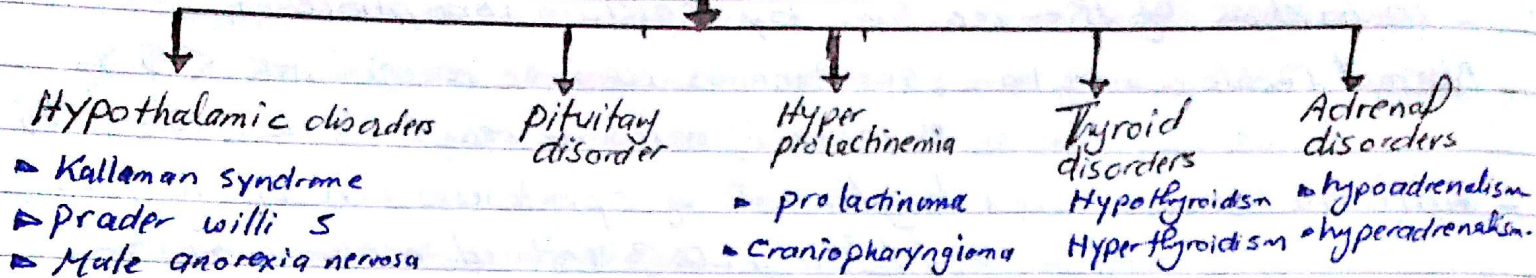 Hypothalamic disorders
► Kallaman syndrome
► prader willi s
► Male anorexia nervosa
pituitary
disorder
Hyper
prolactinemia
► prolactinoma
► Craniopharyngioma
Thyroid
disorders
Hypothyroidsm
Hyperthyroidism
Adrenal
disorders
► hypoadrenalism
• hyperadrenalism.